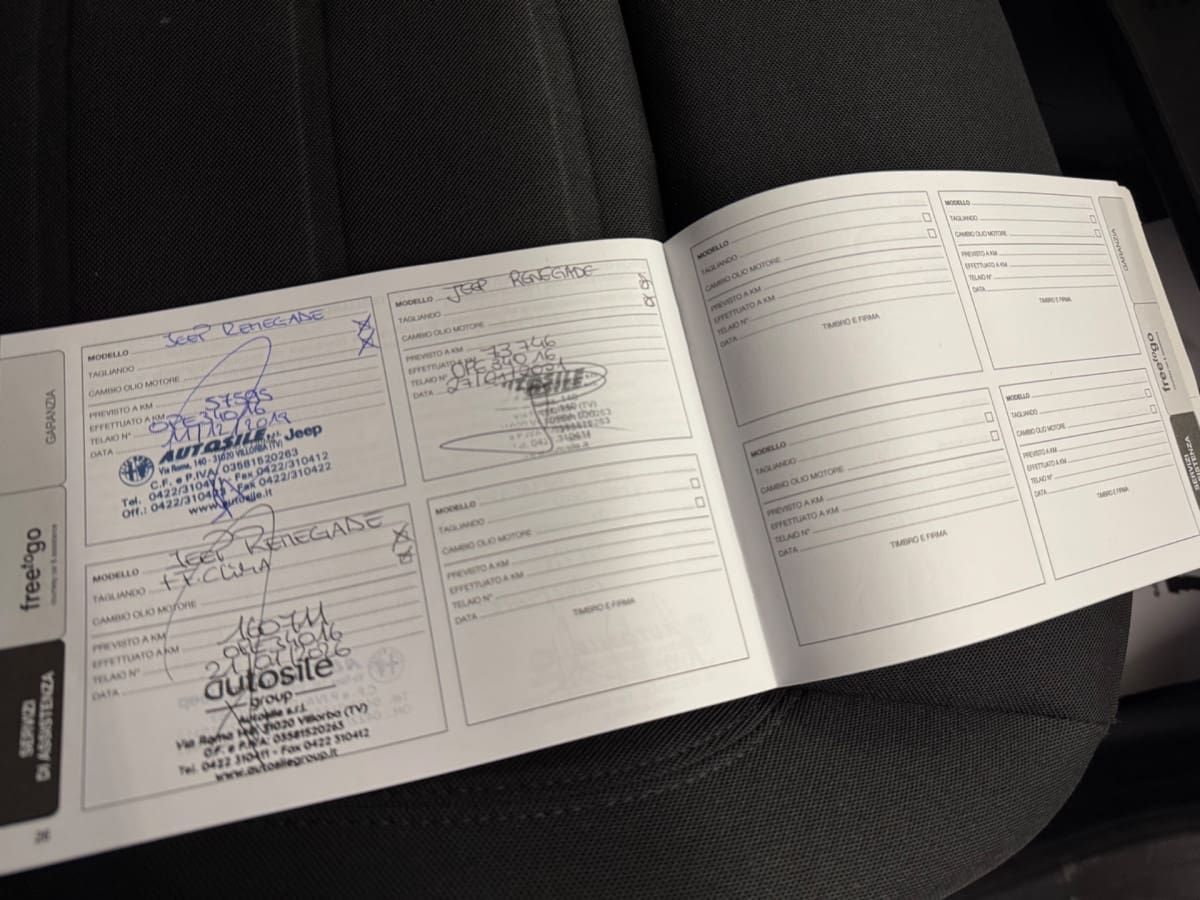 GARANZIA
freetogo
SERVIZI
DI ASSISTENZA
26
MODELLO JEEP RENEGADE
TAGLIANDO
CAMBIO OLIO MOTORE
PREVISTO A KM
EFFETTUATO A KM 57595
TELAIO N° OPE34016
DATA 11/12/2019
AUTOSILE s.r.l. Jeep
Via Roma, 140 - 31020 VILLORBA (TV)
C.F. e P.IVA: 03581520263
Tel. 0422/310411 - Fax 0422/310412
Off.: 0422/310423 - Fax 0422/310422
www.autosile.it
MODELLO JEEP RENEGADE
TAGLIANDO + F.CLIMA
CAMBIO OLIO MOTORE
PREVISTO A KM
EFFETTUATO A KM 160711
TELAIO N° OPE34016
DATA 21/01/2026
autosile
group
Autosile s.r.l.
Via Roma 140 31020 Villorba (TV)
C.F. e P.IVA: 03581520263
Tel. 0422 310411 - Fax 0422 310412
www.autosilegroup.it
MODELLO JEEP RENEGADE
TAGLIANDO
CAMBIO OLIO MOTORE
PREVISTO A KM
EFFETTUATO A KM 73746
TELAIO N° OPE34016
DATA
MODELLO
TAGLIANDO
CAMBIO OLIO MOTORE
PREVISTO A KM
EFFETTUATO A KM
TELAIO N°
DATA
TIMBRO E FIRMA
MODELLO
TAGLIANDO
CAMBIO OLIO MOTORE
PREVISTO A KM
EFFETTUATO A KM
TELAIO N°
DATA
TIMBRO E FIRMA
MODELLO
TAGLIANDO
CAMBIO OLIO MOTORE
PREVISTO A KM
EFFETTUATO A KM
TELAIO N°
DATA
TIMBRO E FIRMA
MODELLO
TAGLIANDO
CAMBIO OLIO MOTORE
PREVISTO A KM
EFFETTUATO A KM
TELAIO N°
DATA
TIMBRO E FIRMA
MODELLO
TAGLIANDO
CAMBIO OLIO MOTORE
PREVISTO A KM
EFFETTUATO A KM
TELAIO N°
DATA
TIMBRO E FIRMA
GARANZIA
freetogo
SERVIZI
DI ASSISTENZA